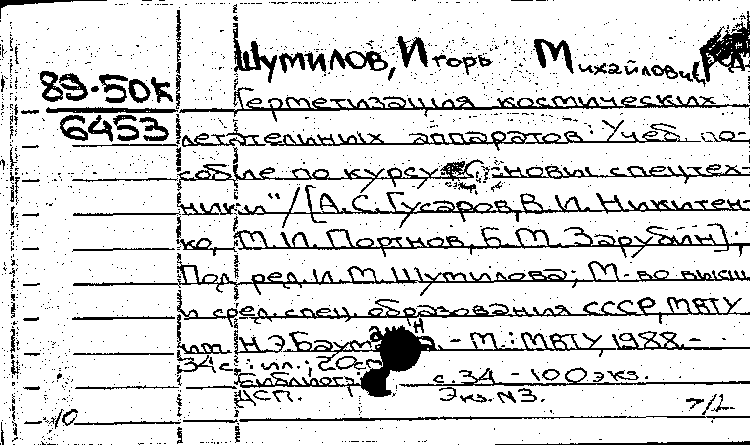 Шумилов, Игорь Михайлович
89-50к
Герметизация космических
6453
летательных аппаратов: Учеб. по-
собие по курсу "Основы спецтех-
ники" / [А.С. Гусаров, В.И. Никитен-
ко, М.И. Портнов, Б.М. Зарубин];
Под ред. И.М. Шумилова; М-во высш.
и сред. спец. образования СССР, МВТУ
им. Н.Э. Баумана. - М.: МВТУ, 1988.-
34с.: ил.; 20см
Библиогр. с.34 - 100экз.
ДСП. Экз. N3.
10